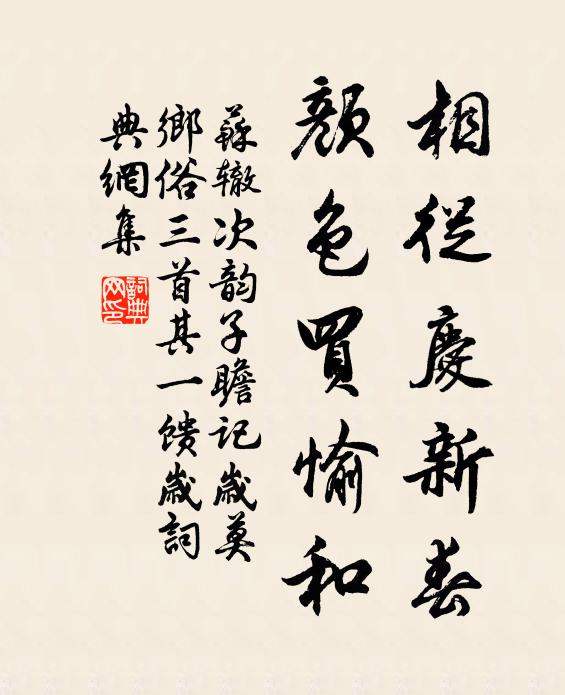 相從慶新春
顏色買愉和
蘇辙次韵子瞻记歲莫
鄉俗三首其一馈歲詞
典網集
詞典
网印